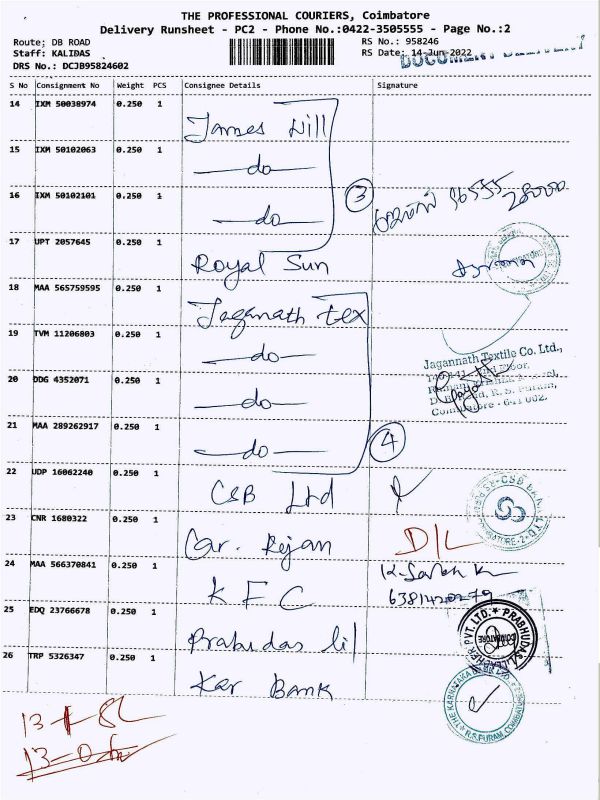 THE PROFESSIONAL COURIERS, Coimbatore
Delivery Runsheet - PC2 - Phone No.:0422-3505555 - Page No.:2
Route; DB ROAD
RS No.: 958246
Staff: KALIDAS
RS Date: 14-Jun-2022
DRS No.: DCJB95824602
DOCUMENT DELIVERY
S No Consignment No Weight PCS Consignee Details Signature
14 IXM 50038974 0.250 1 James Will
15 IXM 50102063 0.250 1 do
16 IXM 50102101 0.250 1 do
3
17 UPT 2057645 0.250 1 Royal Sun
18 MAA 565759595 0.250 1 Jaganath tex
19 TVM 11206803 0.250 1 do
Jagannath Textile Co. Ltd.,
20 DDG 4352071 0.250 1 do
Coimbatore - 641 002.
21 MAA 289262917 0.250 1 do
4
22 UDP 16062240 0.250 1 CSB Ltd
CSB BANK LTD
COIMBATORE-2
23 CNR 1680322 0.250 1 Car. Rejan D/L
24 MAA 566370841 0.250 1 KFC
6381420279
25 EDQ 23766678 0.250 1 Prabudas lil
PRABHUDAS LILLADHER PVT. LTD.
COIMBATORE
26 TRP 5326347 0.250 1 Kar BANK
THE KARNATAKA BANK LTD
R.S.PURAM, COIMBATORE